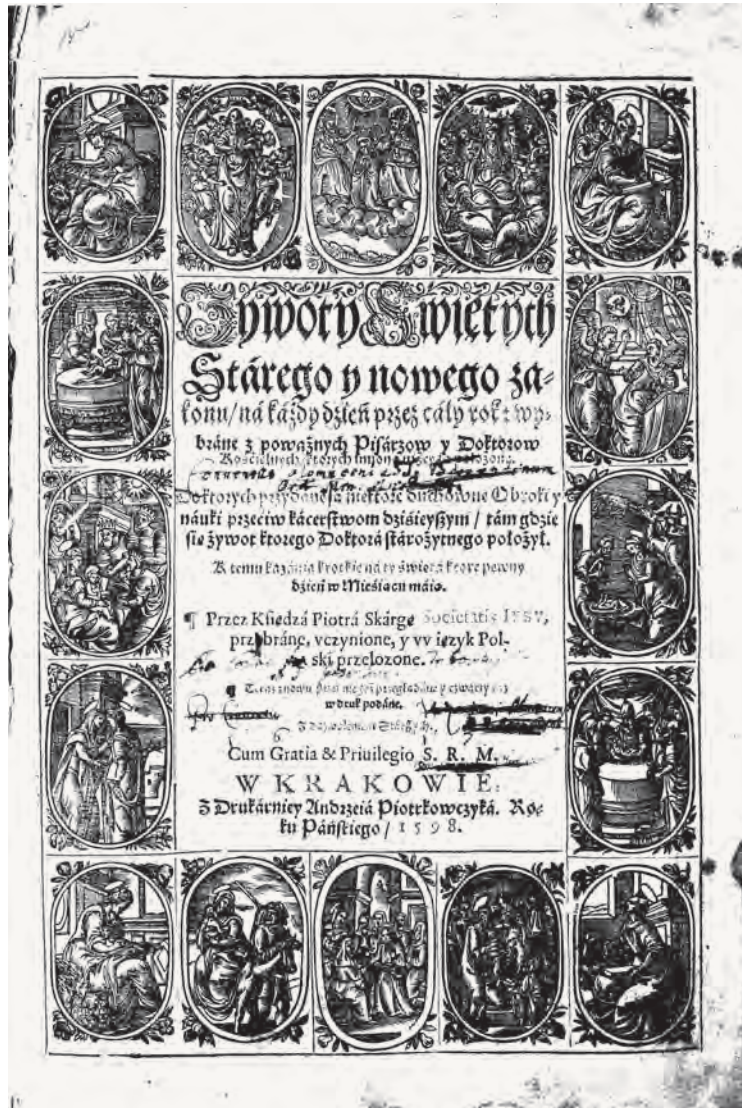 Zywoty Swiętych
Stárego y nowego za-
konu/ ná káżdy dzień przez cáły rok: wy-
bráne z poważnych Pisárzow y Doktorow
Kościelnych, ktorych imioná
Do ktorych przydáne są niektore duchowne Obroki y
náuki przećiw kácerstwom dźiśieyszym / tám gdzie
sie żywot ktorego Doktorá stárożytnego położył.
K temu kazánia krotkie ná ty świętá ktore pewny
dzień w Mieśiącu máią.
¶ Przez Kśiędzá Piotrá Skárgę Societatis IESV,
przebráne, vczynione, y vv ięzyk Pol-
ski przelozone.
¶ Teraz znowu przeglądáne y czwarty raz
w druk podáne.
Z dozwoleniem Stárszych.
Cum Gratia & Priuilegio S. R. M.
W KRAKOWIE,
Z Drukárniey Andrzeiá Piotrkowczyká. Ro-
ku Páńskiego / 1598.